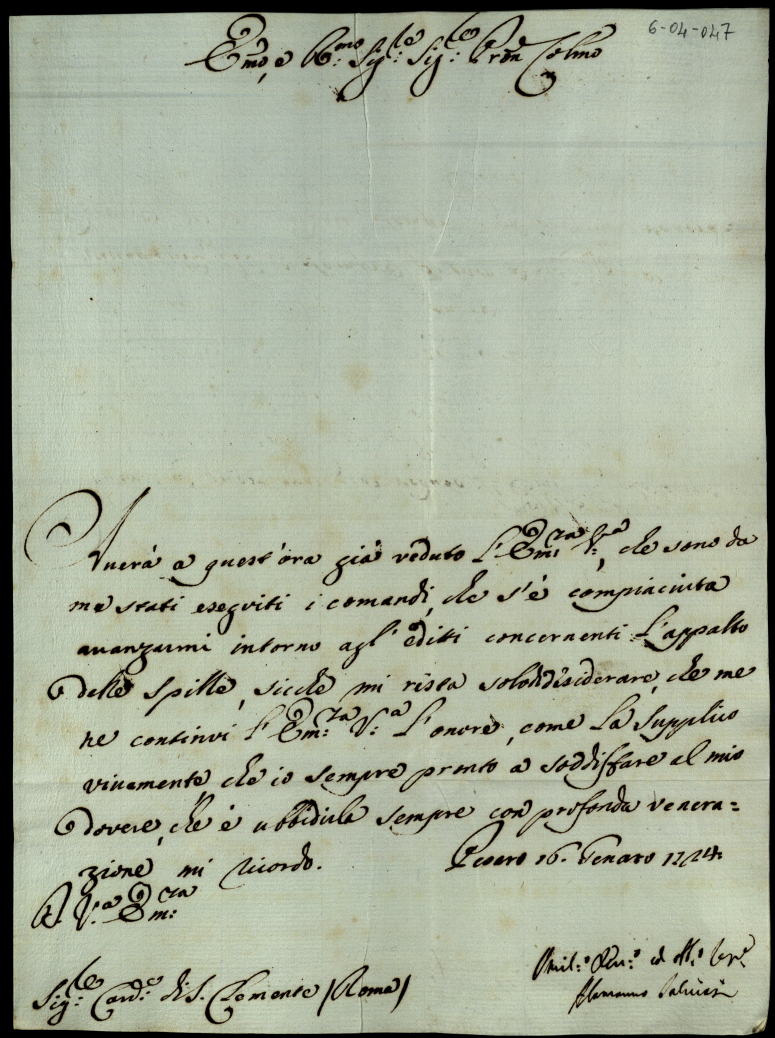 6-04-047
Em̃o, e R.mo Sig.re Sig.re Prõn Colmo
Auerà a quest'ora già veduto l'Em:za V.a, che sono da
me stati eseguiti i comandi, che s'è compiaciuta
auanzarmi intorno agl'editti concernenti l'appalto
delle spille, sicche mi resta solo di disiderare, che me
ne continui l'Em:za V.a l'onore, come la supplico
viuamente, che io sempre pronto a soddisfare al mio
dovere, che è ubbidirla sempre con profonda venera=
zione mi ricordo. Pesaro 16. Genaro 1724.
D V.a Em:za
Sig.re Card.e di S. Clemente /Roma/
Vmil.o Deu.o ed Obl.o Ser.e
Alamanno Saluiati